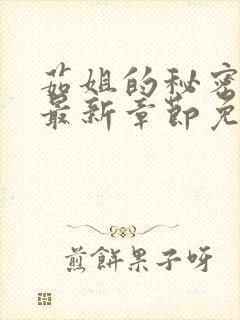 茹姐的秘密
最新章节免
煎餅果子呀